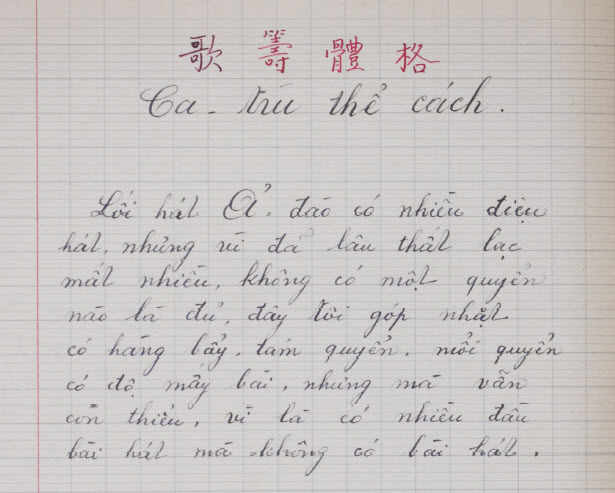 歌籌體格
Ca-trù thể cách.
Lối hát Ả-đào có nhiều điệu
hát, nhưng vì đã lâu thất lạc
mất nhiều, không có một quyển
nào là đủ, đây tôi góp nhặt
có hàng bẩy, tám quyển, mỗi quyển
có độ mấy bài, nhưng mà vẫn
còn thiếu, vì là có nhiều đầu
bài hát mà không có bài hát.